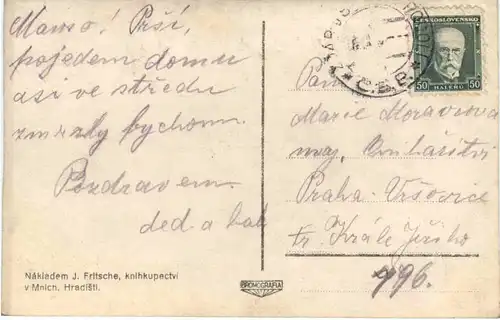 Mamo! Prší,
pojedem domu
asi ve středu
zmrzly bychom.
Pozdravem
děd a bab
Nákladem J. Fritsche, knihkupectví
v Mnich. Hradišti.
GRAFO BROMOGRAFIA
ČESKOSLOVENSKO
50 HALÉŘŮ 50
Paní
Marie Moravcová
maj.
Praha Vršovice
tř. Krále Jiřího
996.